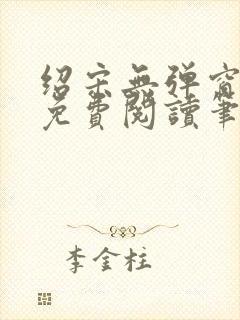 绍宋無弹窗
免費閱讀筆
李金柱